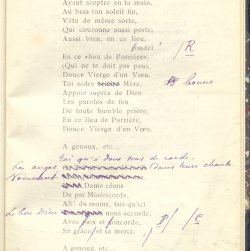 Ayant sceptre en ta main,
Au bras ton soleil fin,
Vêtu de même sorte,
Qui couronne aussi porte,
Aussi bien, en ce lieu,
/R
En ce «lieu de Porrières»
(Qui ne te doit pas peu),
Douce Vierge d'un Vœu,
Toi notre Mère, bonne
Appuie auprès de Dieu
Les paroles de feu
De toute humble prière,
En ce lieu de Porrière,
Douce Vierge d'un Vœu.
A genoux, etc...
Toi qu'à
Les anges dans leurs chants
Dame céans
De par Miséricorde,
Ah! du moins, fais qu'ici
Le bon Dieu nous accorde,
Avec paix et concorde,
Sa grâce et sa merci.
A genoux, etc...